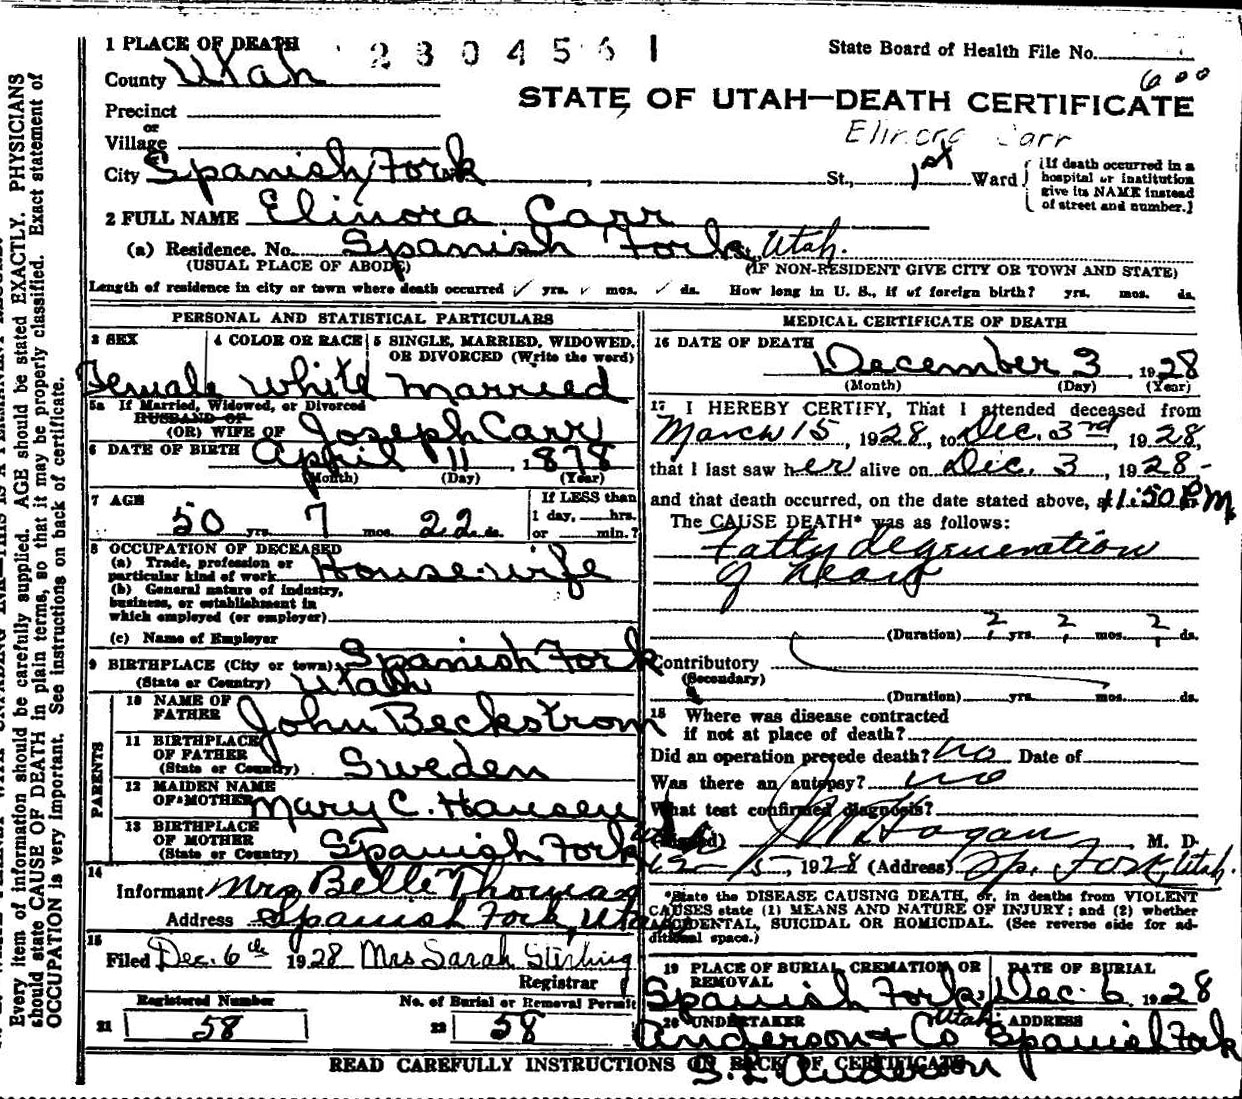 1 PLACE OF DEATH
2304561
State Board of Health File No.
County Utah
600
STATE OF UTAH—DEATH CERTIFICATE
Precinct
or
Village
Elinora Carr
City Spanish Fork, St., 1st Ward
{If death occurred in a
hospital or institution
give its NAME instead
of street and number.}
2 FULL NAME Elinora Carr
(a) Residence. No. Spanish Fork, Utah.
(USUAL PLACE OF ABODE) (IF NON-RESIDENT GIVE CITY OR TOWN AND STATE)
Length of residence in city or town where death occurred ✓ yrs. ✓ mos. ✓ ds. How long in U. S., if of foreign birth? yrs. mos. ds.
PERSONAL AND STATISTICAL PARTICULARS
3 SEX 4 COLOR OR RACE 5 SINGLE, MARRIED, WIDOWED, OR DIVORCED (Write the word)
Female White Married
5a If Married, Widowed, or Divorced
HUSBAND OF
(OR) WIFE OF Joseph Carr
6 DATE OF BIRTH April 11, 1878
(Month) (Day) (Year)
7 AGE If LESS than
50 yrs. 7 mos. 22 ds. 1 day, hrs.
or min.?
8 OCCUPATION OF DECEASED
(a) Trade, profession or
particular kind of work House-wife
(b) General nature of industry,
business, or establishment in
which employed (or employer)
(c) Name of Employer
9 BIRTHPLACE (City or town) Spanish Fork
(State or Country) Utah
PARENTS
10 NAME OF
FATHER John Beckstrom
11 BIRTHPLACE
OF FATHER Sweden
(State or Country)
12 MAIDEN NAME
OF MOTHER Mary C. Hansen
13 BIRTHPLACE
OF MOTHER
(State or Country) Spanish Fork
14
Informant Mrs Belle Thomas
Address Spanish Fork, Utah
15
Filed Dec. 6th 1928 Mrs Sarah Stirling
Registrar
Registered Number No. of Burial or Removal Permit
21 58 22 58
MEDICAL CERTIFICATE OF DEATH
16 DATE OF DEATH
December 3, 1928
(Month) (Day) (Year)
17 I HEREBY CERTIFY, That I attended deceased from
March 15, 1928, to Dec. 3rd, 1928,
that I last saw her alive on Dec. 3, 1928-
and that death occurred, on the date stated above, at 11:50 P.M.
The CAUSE DEATH* was as follows:
Fatty degeneration
of heart
(Duration) 2 yrs. 2 mos. 2 ds.
Contributory
(Secondary)
(Duration) yrs. mos. ds.
18 Where was disease contracted
if not at place of death?
Did an operation precede death? no Date of
Was there an autopsy? no
What test confirmed diagnosis?
(Signed) J W Hagan M. D.
12-5-, 1928 (Address) Sp. Fork, Utah.
*State the DISEASE CAUSING DEATH, or, in deaths from VIOLENT
CAUSES state (1) MEANS AND NATURE OF INJURY; and (2) whether
ACCIDENTAL, SUICIDAL OR HOMICIDAL. (See reverse side for ad-
ditional space.)
19 PLACE OF BURIAL CREMATION OR REMOVAL DATE OF BURIAL
Spanish Fork, Utah Dec. 6, 1928
20 UNDERTAKER ADDRESS
Anderson & Co Spanish Fork
S. L. Anderson
READ CAREFULLY INSTRUCTIONS ON BACK OF CERTIFICATE
Every item of information should be carefully supplied. AGE should be stated EXACTLY. PHYSICIANS
should state CAUSE OF DEATH in plain terms, so that it may be properly classified. Exact statement of
OCCUPATION is very important. See instructions on back of certificate.